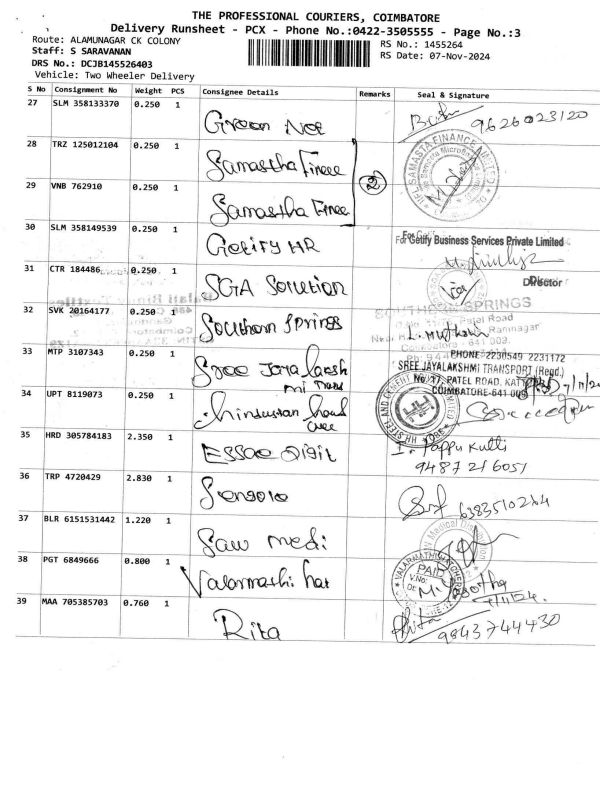 THE PROFESSIONAL COURIERS, COIMBATORE
Delivery Runsheet - PCX - Phone No.:0422-3505555 - Page No.:3
Route: ALAMUNAGAR CK COLONY
Staff: S SARAVANAN
DRS No.: DCJB145526403
Vehicle: Two Wheeler Delivery
RS No.: 1455264
RS Date: 07-Nov-2024
S No Consignment No Weight PCS Consignee Details Remarks Seal & Signature
27 SLM 358133370 0.250 1 Green Net 9626023120
28 TRZ 125012104 0.250 1 Samastha Finee
29 VNB 762910 0.250 1 Samastha Finee 2
30 SLM 358149539 0.250 1 Getify HR For Getify Business Services Private Limited
Director
31 CTR 184486 0.250 1 SGA Solution
32 SVK 20164177 0.250 1 Southern Springs
SOUTHERN SPRINGS
Patel Road
Ramnagar
33 MTP 3107343 0.250 1 Sree
PHONE 2230549 2231172
SREE JAYALAKSHMI TRANSPORT (Regd.)
No. 77, PATEL ROAD,
COIMBATORE-641 009
34 UPT 8119073 0.250 1 hindustan
35 HRD 305784183 2.350 1 ESSae Digit
9487216051
36 TRP 4720429 2.830 1 Sengolo
6383510284
37 BLR 6151531442 1.220 1 Saw medi
38 PGT 6849666 0.800 1 Valarmathi har
PAID
V.No:
Dt:
39 MAA 705385703 0.760 1 Rita Rita
9843744430